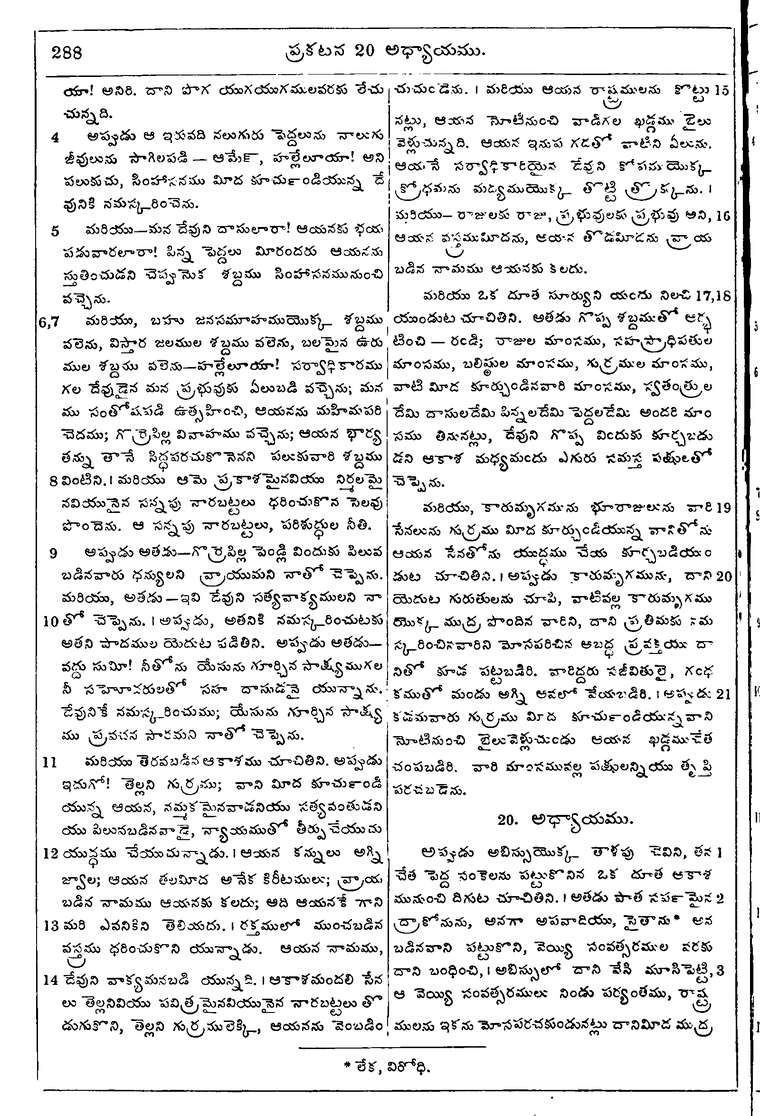 288
ప్రకటన 20 అధ్యాయము.
యా! అనిరి. దాని పొగ యుగయుగములవరకు లేచు
చున్నది.
4 అప్పుడు ఆ ఇరువది నలుగురు పెద్దలును నాలుగు
జీవులును సాగిలపడి — ఆమేన్, హల్లేలూయా! అని
పలుకుచు, సింహాసనము మీద కూర్చుండియున్న దే
వునికి నమస్కరించెను.
5 మరియు—మన దేవుని దాసులారా! ఆయనకు భయ
పడువారలారా! పిన్న పెద్దలు మీరందరు ఆయనను
స్తుతించుడని చెప్పు నొక శబ్దము సింహాసనమునుంచి
వచ్చెను.
6,7 మరియు, బహు జనసమూహముయొక్క శబ్దము
వలెను, విస్తార జలముల శబ్దము వలెను, బలమైన ఉరు
ముల శబ్దము వలెను—హల్లేలూయా! సర్వాధికారము
గల దేవుడైన మన ప్రభువుకు ఏలుబడి వచ్చెను; మన
ము సంతోషపడి ఉత్సహించి, ఆయనను మహిమపరి
చెదము; గొర్రెపిల్ల వివాహము వచ్చెను; ఆయన భార్య
తన్ను తానే సిద్ధపరచుకొనెనని పలుకువారి శబ్దము
8 వింటిని. । మరియు ఆమె ప్రకాశమైనవియు నిర్మలమై
నవియునైన సన్నపు నారబట్టలు ధరించుకొన సెలవు
పొందెను. ఆ సన్నపు నారబట్టలు, పరిశుద్ధుల నీతి.
9 అప్పుడు అతడు—గొర్రెపిల్ల పెండ్లి విందుకు పిలువ
బడినవారు ధన్యులని వ్రాయుమని నాతో చెప్పెను.
మరియు, అతడు—ఇవి దేవుని సత్యవాక్యములని నా
10 తో చెప్పెను. । అప్పుడు, అతనికి నమస్కరించుటకు
అతని పాదముల యెదుట పడితిని. అప్పుడు అతడు—
వద్దు సుమీ! నీతోను యేసును గూర్చిన సాక్ష్యముగల
నీ సహోదరులతో సహ దాసుడనై యున్నాను.
దేవునికే నమస్కరించుము; యేసును గూర్చిన సాక్ష్య
ము ప్రవచన సారమని నాతో చెప్పెను.
11 మరియు తెరవబడిన ఆకాశము చూచితిని. అప్పుడు
ఇదుగో! తెల్లని గుర్రము; వాని మీద కూర్చుండి
యున్న ఆయన, నమ్మకమైనవాడనియు సత్యవంతుడని
యు పిలునబడినవాడై, న్యాయముతో తీర్పుచేయుచు
12 యుద్ధము చేయుచున్నాడు. । ఆయన కన్నులు అగ్ని
జ్వాల; ఆయన తలమీద అనేక కిరీటములు; వ్రాయ
బడిన నామము ఆయనకు కలదు; అది ఆయనకే గాని
13 మరి ఎవనికిని తెలియదు. । రక్తములో ముంచబడిన
వస్త్రము ధరించుకొని యున్నాడు. ఆయన నామము,
14 దేవుని వాక్యమనబడి యున్నది. । ఆకాశమందలి సేన
లు తెల్లనివియు పవిత్రమైనవియునైన నారబట్టలు తొ
డుగుకొని, తెల్లని గుర్రములెక్కి, ఆయనను వెంబడిం
చుచుండెను. । మరియు ఆయన రాష్ట్రములను కొట్టు 15
నట్లు, ఆయన నోటినుంచి వాడిగల ఖడ్గము బైలు
వెళ్లుచున్నది. ఆయన ఇనుప గడతో వాటిని ఏలును.
ఆయనే సర్వాధికారియైన దేవుని కోపముయొక్క
క్రోధమను మద్యముయొక్క తొట్టి త్రొక్కును. ।
మరియు— రాజులకు రాజు, ప్రభువులకు ప్రభువు అని, 16
ఆయన వస్త్రముమీదను, ఆయన తొడమీదను వ్రాయ
బడిన నామము ఆయనకు కలదు.
మరియు ఒక దూత సూర్యుని యందు నిలచి 17,18
యుండుట చూచితిని. అతడు గొప్ప శబ్దముతో ఆర్భ
టించి — రండి; రాజుల మాంసము, సహస్రాధిపతుల
మాంసము, బలిష్ఠుల మాంసము, గుర్రముల మాంసము,
వాటి మీద కూర్చుండినవారి మాంసము, స్వతంత్రుల
దేమి దాసులదేమి పిన్నలదేమి పెద్దలదేమి అందరి మాం
సము తినునట్లు, దేవుని గొప్ప విందుకు కూర్చబడు
డని ఆకాశ మధ్యమందు ఎగురు సమస్త పక్షులతో
చెప్పెను.
మరియు, కారుమృగమును భూరాజులును వారి 19
సేనలును గుర్రము మీద కూర్చుండియున్న వానితోను
ఆయన సేనతోను యుద్ధము చేయ కూర్చబడియుం
డుట చూచితిని. । అప్పుడు కారుమృగమును, దాని 20
యెదుట గురుతులను చూపి, వాటివల్ల కారుమృగము
యొక్క ముద్ర పొందిన వారిని, దాని ప్రతిమకు నమ
స్కరించినవారిని మోసపరిచిన అబద్ధ ప్రవక్తయు దా
నితో కూడ పట్టబడిరి. వారిద్దరు సజీవితులై, గంధ
కముతో మండు అగ్ని ఆవలో వేయబడిరి. । అప్పుడు 21
కడమవారు గుర్రము మీద కూర్చుండియున్నవాని
నోటినుంచి బైలువెళ్లుచుండు ఆయన ఖడ్గముచేత
చంపబడిరి. వారి మాంసమువల్ల పక్షులన్నియు తృప్తి
పరచబడెను.
20. అధ్యాయము.
అప్పుడు అబిస్సుయొక్క తాళపు చెవిని, తన 1
చేత పెద్ద సంకెలను పట్టుకొనిన ఒక దూత ఆకాశ
మునుంచి దిగుట చూచితిని. । అతడు పాత సర్పమైన 2
ద్రాకోనును, అనగా అపవాదియు, సైతాను* అన
బడినవాని పట్టుకొని, వెయ్యి సంవత్సరముల వరకు
దాని బంధించి, । అబిస్సులో దాని వేసి మూసిపెట్టి, 3
ఆ వెయ్యి సంవత్సరములు నిండు పర్యంతము, రాష్ట్ర
ములను ఇకను మోసపరచకుండునట్లు దానిమీద ముద్ర
* లేక, విరోధి.